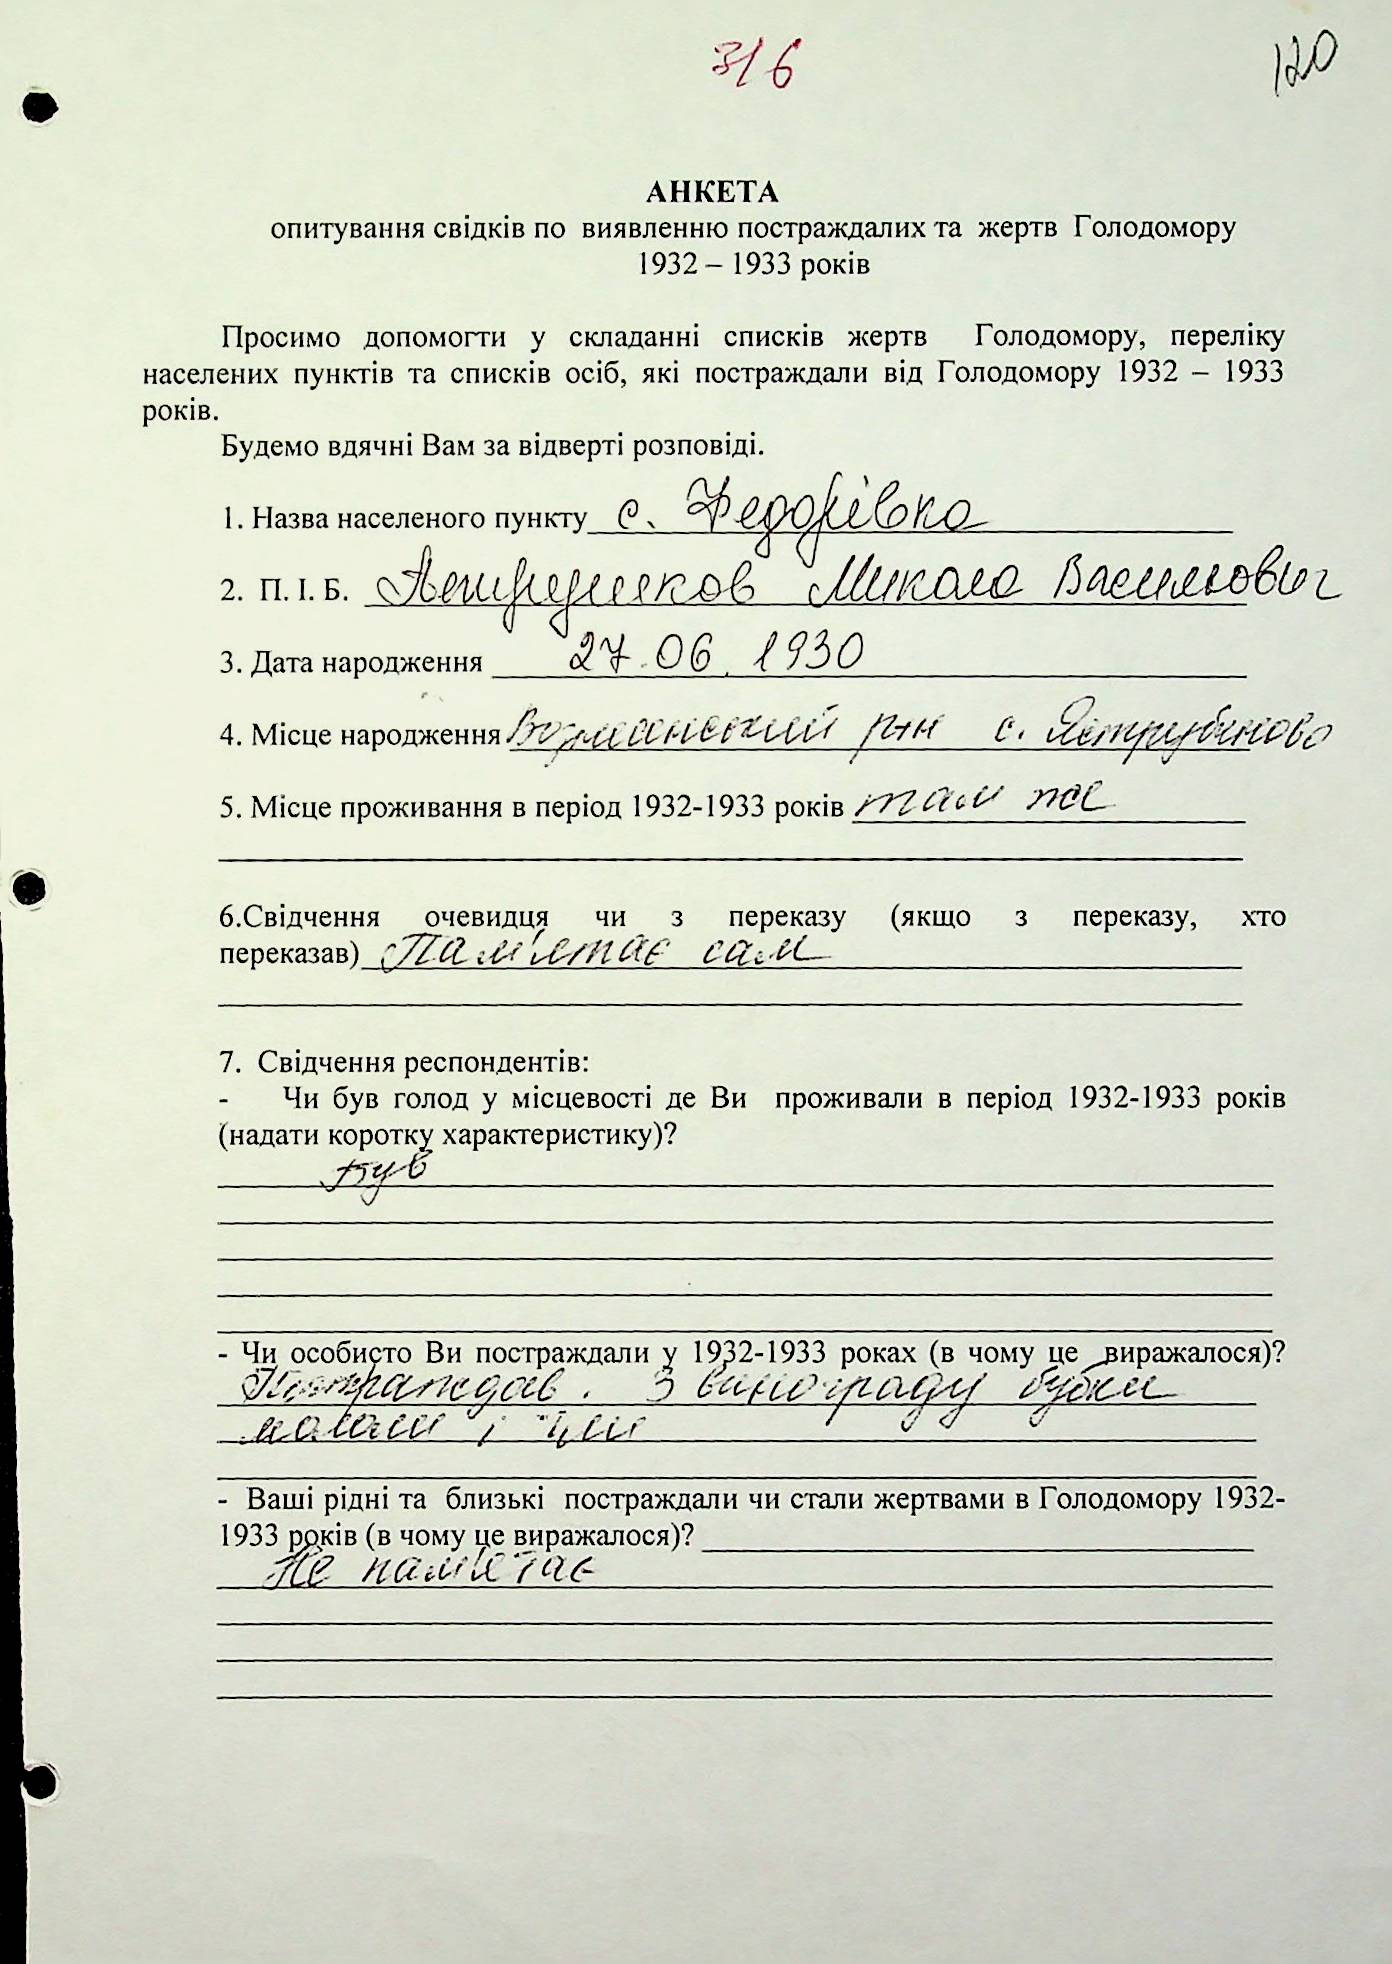 316
120
АНКЕТА
опитування свідків по виявленню постраждалих та жертв Голодомору
1932 – 1933 років
Просимо допомогти у складанні списків жертв Голодомору, переліку
населених пунктів та списків осіб, які постраждали від Голодомору 1932 – 1933
років.
Будемо вдячні Вам за відверті розповіді.
1. Назва населеного пункту с. Федорівка
2. П. І. Б. Микола Васильович
3. Дата народження 27.06.1930
4. Місце народження р-н с. Яструбиново
5. Місце проживання в період 1932-1933 років там же
6.Свідчення очевидця чи з переказу (якщо з переказу, хто
переказав) Пам'ятає сам
7. Свідчення респондентів:
- Чи був голод у місцевості де Ви проживали в період 1932-1933 років
(надати коротку характеристику)?
Був
- Чи особисто Ви постраждали у 1932-1933 роках (в чому це виражалося)?
Постраждав. З винограду бубки
мололи і їли
- Ваші рідні та близькі постраждали чи стали жертвами в Голодомору 1932-
1933 років (в чому це виражалося)?
Не пам'ятає